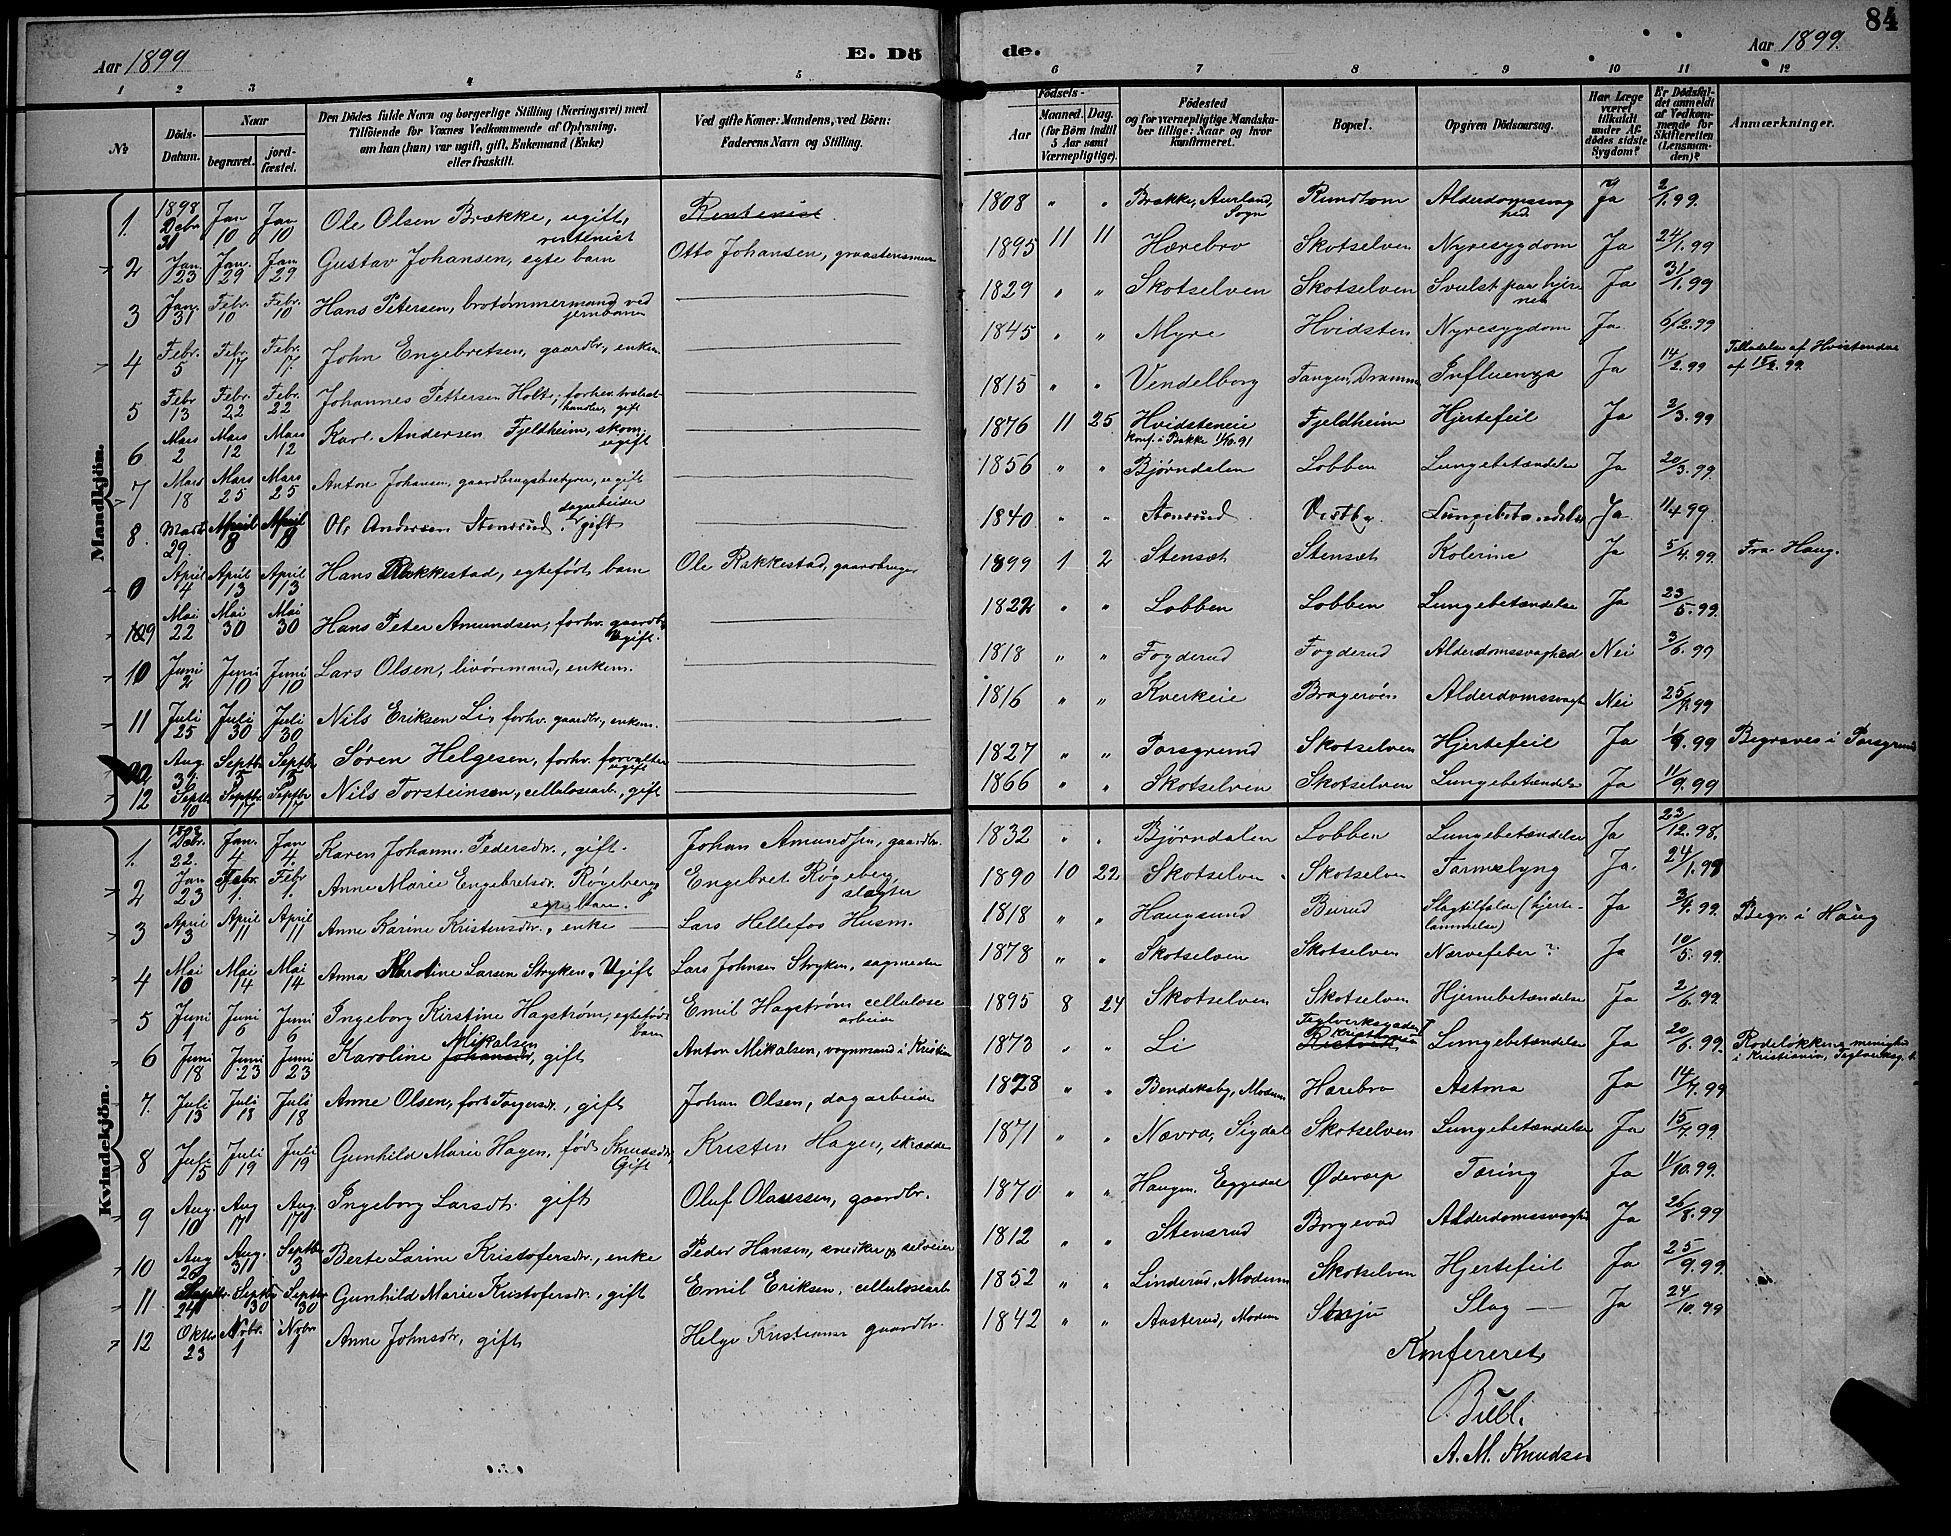 84
Aar 1899
E. Dö
de.
Aar 1899.
1 2 3 4 5 6 7 8 9 10 11 12
No
Döds-Datum.
Naar
begravet.
jord-fæstet.
Den Dödes fulde Navn og borgerlige Stilling (Næringsvei) med
Tilföiende for Voxnes Vedkommende af Oplysning,
om han (hun) var ugift, gift, Enkemand (Enke)
eller fraskilt.
Ved gifte Koner: Mandens, ved Börn:
Faderens Navn og Stilling.
Födsels-
Aar
Maaned. Dag.
(for Börn indtil
5 Aar samt
Værnepligtige).
Födested
og for værnepligtige Mandska-
ber tillige: Naar og hvor
konfirmeret.
Bopæl.
Opgiven Dödsaarsag.
Har Læge
været
tilkaldt
under Af-
dödes sidste
Sygdom?
Er Dödsfal-
det anmeldt
af Vedkom-
mende for
Skifteretten
(Lensman-
den)?
Anmærkninger.
Mandkjön.
1. 1898 Decbr 31 Jan 10 Jan 10 Ole Olsen Brække, ugift, rentenist Rentenist 1808 " " Brække, Aurland, Sogn Rundtom Alderdomssvaghed Ja 2/1.99.
2 Jan. 23 Jan. 29 Jan 29 Gustav Johansen, egte barn Otto Johansen, graastensmur 1895 11 11 Hærebro Skotselven Nyresygdom Ja 24/1.99
3 Jan. 31 Febr. 10 Febr. 10 Hans Petersen, brotømmermand ved jernbanen 1829 " " Skotselven Skotselven Svulst paa hjernen Ja 31/1.99
4 Febr. 5 Febr. 17 Febr. 17. John Engebretsen, gaardbr., enkem. 1845 " " Myre Hvidsten Nyresygdom Ja. 6/2.99
5 Febr 13 Febr. 22 Febr. 22 Johannes Pettersen Holte, forhv. trælasthandler, gift 1815 " " Vendelborg Tangen, Drammen Influenza Ja 14/2.99 Tilladelse af Hvistendae af 15/2.99.
6 Mars 2 Mars 12 Mars 12 Karl Andersen Fjeldheim, skom; ugift 1876 11 25 Hvidsteneie Konf. i Bakke 11/10.91 Fjeldheim Hjertefeil Ja 2/3.99
7 Mars 18 Mars 25 Mars 25 Anton Johansen, gaardbrugsbestyrer, ugift 1856 " " Bjørndalen Lobben Lungebetændelse Ja 20/3.99.
8. Marts 29. April 8 April 8 Ole Andersen Stensrud, dagarbeider gift 1840 " " Stensrud Vestby. Lungebetændelse Ja. 11/4 99.
April 4 April 13 April 13 Hans Rakkestad, egtefødt barn Ole Rakkestad, gaardbruger 1899 1 2 Stensæt Stensæt Kolerine Ja 5/4.99. Fra Haug.
9 Mai 22 Mai 30 Mai 30 Hans Peter Amundsen, forhv. gaardbr. Ugift. 1822 " " Lobben Lobben Lungebetændelse Ja 23/5.99.
10 Juni 2 Juni 10 Juni 10 Lars Olsen, livøremand, enkem. 1818 " " Fogderud Fogderud Alderdomssvaghed Nei 3/6.99
11 Juli 25 Juli 30 Juli 30 Nils Eriksen Li, forhv. gaardbr., enkem. 1816 " " Kverkeie Bragerøen Alderdomssvagh Nei 25/7.99
Aug. 31. Septbr 5 Septbr 5 Søren Helgesen, forhv. forvalter ugift 1827 " " Porsgrund Skotselven Hjertefeil Ja 1/9.99 Begraves i Porsgrund
12 Septbr 10 Septbr 17 Septbr 17 Nils Torsteinsen, cellulosearb., gift 1866 " " Skotselven Skotselven Lungebetændelse Ja 11/9.99
Kvindekjön.
1. 1898 Debr. 22. Jan. 4 Jan 4. Karen Johanne Pedersdtr., gift. Johan Amundsen, gaardbr. 1832 " " Bjørndalen Lobben Lungebetændelse Ja 23/12.98.
2 Jan 23 Febr. 1. Febr 1. Anne Marie Engebretsdr. Røgeberg egte barn. Engebret Røgeberg slagter 1890 10 22 Skotselven Skotselven Tarmslyng Ja. 24/1.99
3 April 3 April 11 April 11 Anne Karine Kristensdtr., enke Lars Hellefos Husm. 1818 " " Haugsund Beirud Slagtilfælde (hjertelammelse) Ja 3/4.99. Begr. i Haug
4 Mai 10 Mai 14 Mai 14 Anna Karoline Larsen Stryken, Ugift Lars Johnsen Stryken, sagmester 1878 " " Skotselven Skotselven Nærvefeber? Ja 10/5.99.
5 Juni 1 Juni 6 Juni 6 Ingeborg Kirstine Hagstrøm, egtefødt barn Emil Hagstrøm cellulose arbeider 1895 8 24 Skotselven Skotselven Hjernebetændelse Ja 2/6.99.
6 Juni 18 Juni 23 Juni 23 Karoline Mikalsen Johansdr, gift Anton Mikalsen, vognmand i Kristian 1873 " " Li Teglverksgaden 7 Kristiania Lungebetændelse Ja 20/6.99. Rodeløkkens menighed i Kristiania, Teglverksg. 7
7. Juli 13 Juli 18 Juli 18 Anne Olsen, født Torgersdr., gift Johan Olsen, dagarbeider 1828 " " Bendiksby, Modum Hærebro Astma Ja 14/7.99
8 Juli 15 Juli 19 Juli 19 Gunhild Marie Hagen, født Knudsdr, Gift Kristen Hagen, skrædder 1871 " " Nævra, Sigdal Skotselven Lungebetændelse Ja 15/7.99.
9 Aug. 10 Aug 17 Aug. 17 Ingeborg Larsdt. gift Oluf Olaussen, gaardbr. 1870 " " Haugen, Eggedal Ødevarp Tæring Ja 11/10.99.
10 Aug 26 Aug. 31 Septbr 3 Berte Larine Kristofersdr., enke Peder Hansen, snedker og selveier 1812 " " Stensrud Borgevad Alderdomssvaghe Ja 26/8.99
11 Septbr 24 Septbr 30 Septbr 30 Gunhild Marie Kristofersdr., gift Emil Eriksen, cellulosearb 1852 " " Linderud, Modum Skotselven Hjertefeil Ja 25/9.99.
12 Oktbr 23 Novbr. 1 Novbr 1 Anne Johnsdtr, gift Helge Kristiansen gaardbr. 1842 " " Aasterud, Modum Slag Ja 24/10.99
Konfereret
A. M. Knudsen